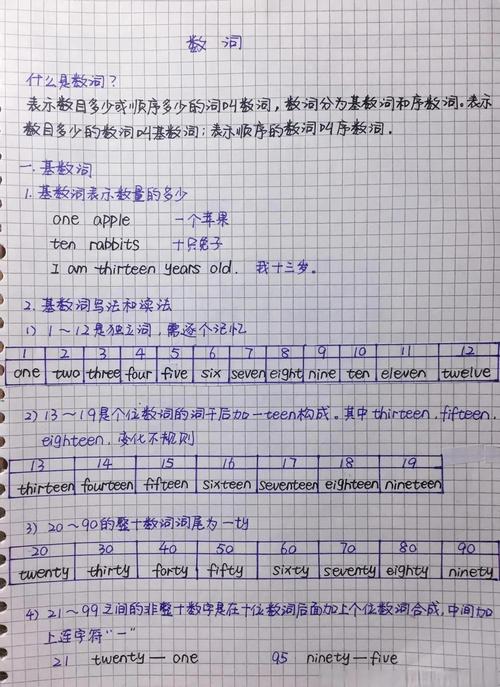 数 词
什么是数词？
表示数目多少或顺序多少的词叫数词，数词分为基数词和序数词。表示
数目多少的数词叫基数词；表示顺序的数词叫序数词．
一．基数词
1．基数词表示数量的多少
one apple 一个苹果
ten rabbits 十只兔子
I am thirteen years old. 我十三岁。
2．基数词写法和读法
1) 1～12是独立词，需逐个记忆
1 2 3 4 5 6 7 8 9 10 11 12
one two three four five six seven eight nine ten eleven twelve
2) 13～19是个位数词的词干后加一teen构成。其中thirteen，fifteen，
eighteen，变化不规则
13 14 15 16 17 18 19
thirteen fourteen fifteen sixteen seventeen eighteen nineteen
3) 20～90的整十数词词尾为一ty
20 30 40 50 60 70 80 90
twenty thirty forty fifty sixty seventy eighty ninety
4) 21～99之间的非整十数字是在十位数词后面加上个位数词合成，中间加
上连字符“－”
21 twenty—one 95 ninety—five